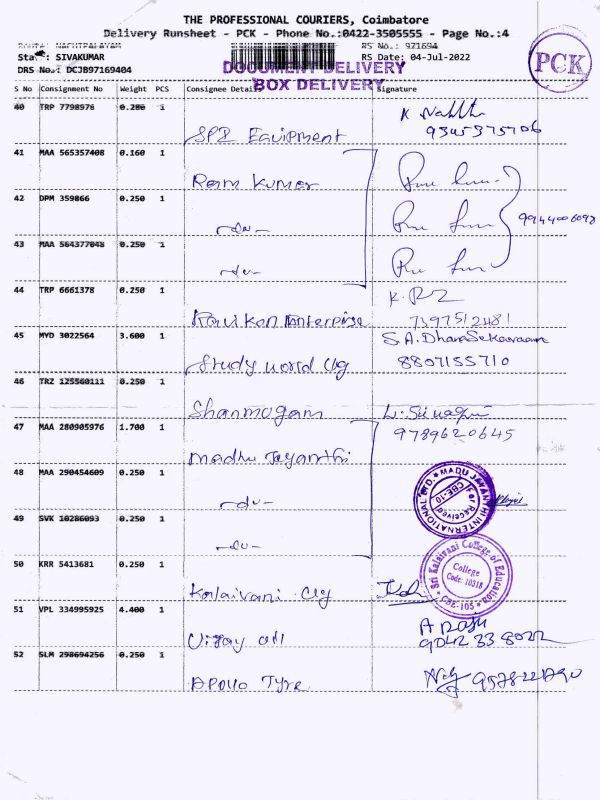 THE PROFESSIONAL COURIERS, Coimbatore
Delivery Runsheet - PCK - Phone No.:0422-3505555 - Page No.:4
Route: NACHIPALAYAM RS No.: 971694
Staff: SIVAKUMAR RS Date: 04-Jul-2022
DRS No.: DCJB97169404
DOCUMENT DELIVERY
BOX DELIVERY
PCK
S No Consignment No Weight PCS Consignee Details Signature
40 TRP 7798978 0.280 1
SPR Equipment
9345375706
41 MAA 565357408 0.160 1
Ram Kumar
42 DPM 359866 0.250 1
-do-
9944006098
43 MAA 564377048 0.250 1
-do-
44 TRP 6661378 0.250 1
Ravikon Enterprise
7397512481
45 MYD 3022564 3.600 1
S.A. Dhanasekaran
Study world Clg
8807155710
46 TRZ 125560111 0.250 1
Shanmugam
47 MAA 280905976 1.700 1
9789620645
Madhu Jayanthi
48 MAA 290454609 0.250 1
-do-
MADU JAYANTHI INTERNATIONAL LTD.
For Received
CBE-10
49 SVK 10286093 0.250 1
-do-
50 KRR 5413681 0.250 1
Kalaivani Clg
Sri Kalaivani College of Education
College
Code: 10318
CBE-105
51 VPL 334995925 4.400 1
Vijay oil
9042338022
52 SLM 298694256 0.250 1
Apollo Tyre